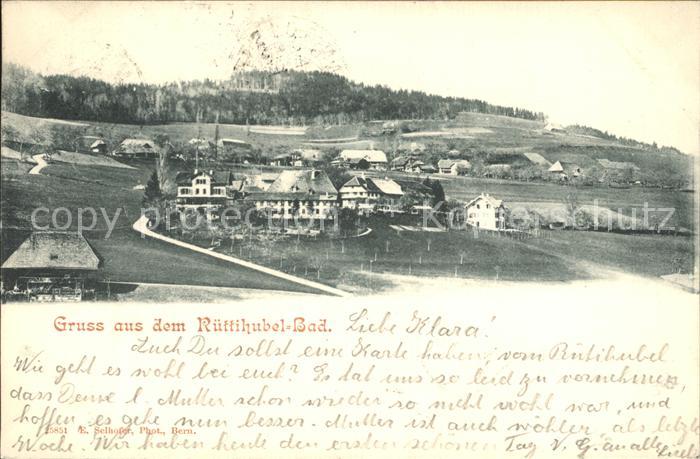 copyright-protected Kopier-Schutz
Gruss aus dem Rüttihubel-Bad. Liebe Klara!
Auch Du sollst eine Karte haben, vom Rütihubel.
Wie geht es wohl bei euch? Es tat uns so leid zu vernehmen,
dass Deine l. Mutter schon wieder so nicht wohl war, und
hoffen es gehe nun besser. Mutter ist auch wohler, als letzte
25851 E. Selhofer, Phot., Bern.
Woche. Wir haben heute den ersten schönen Tag